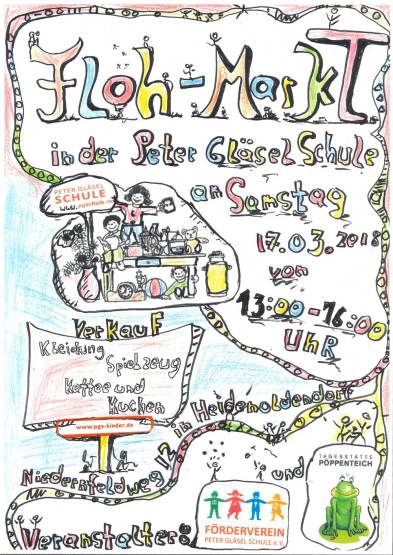 Floh-Markt
in der Peter Gläsel Schule
am Samstag
17.03.2018
von
13:00-16:00
UHR
PETER GLÄSEL
SCHULE
www.pgschule.de
Verkauf
Kleidung
Spielzeug
Kaffee und
Kuchen
www.pgs-kinder.de
Niedernfeldweg 12 in Heidenoldendorf
Veranstalter:
FÖRDERVEREIN
PETER GLÄSEL SCHULE e.V.
und
TAGESSTÄTTE
PÖPPENTEICH